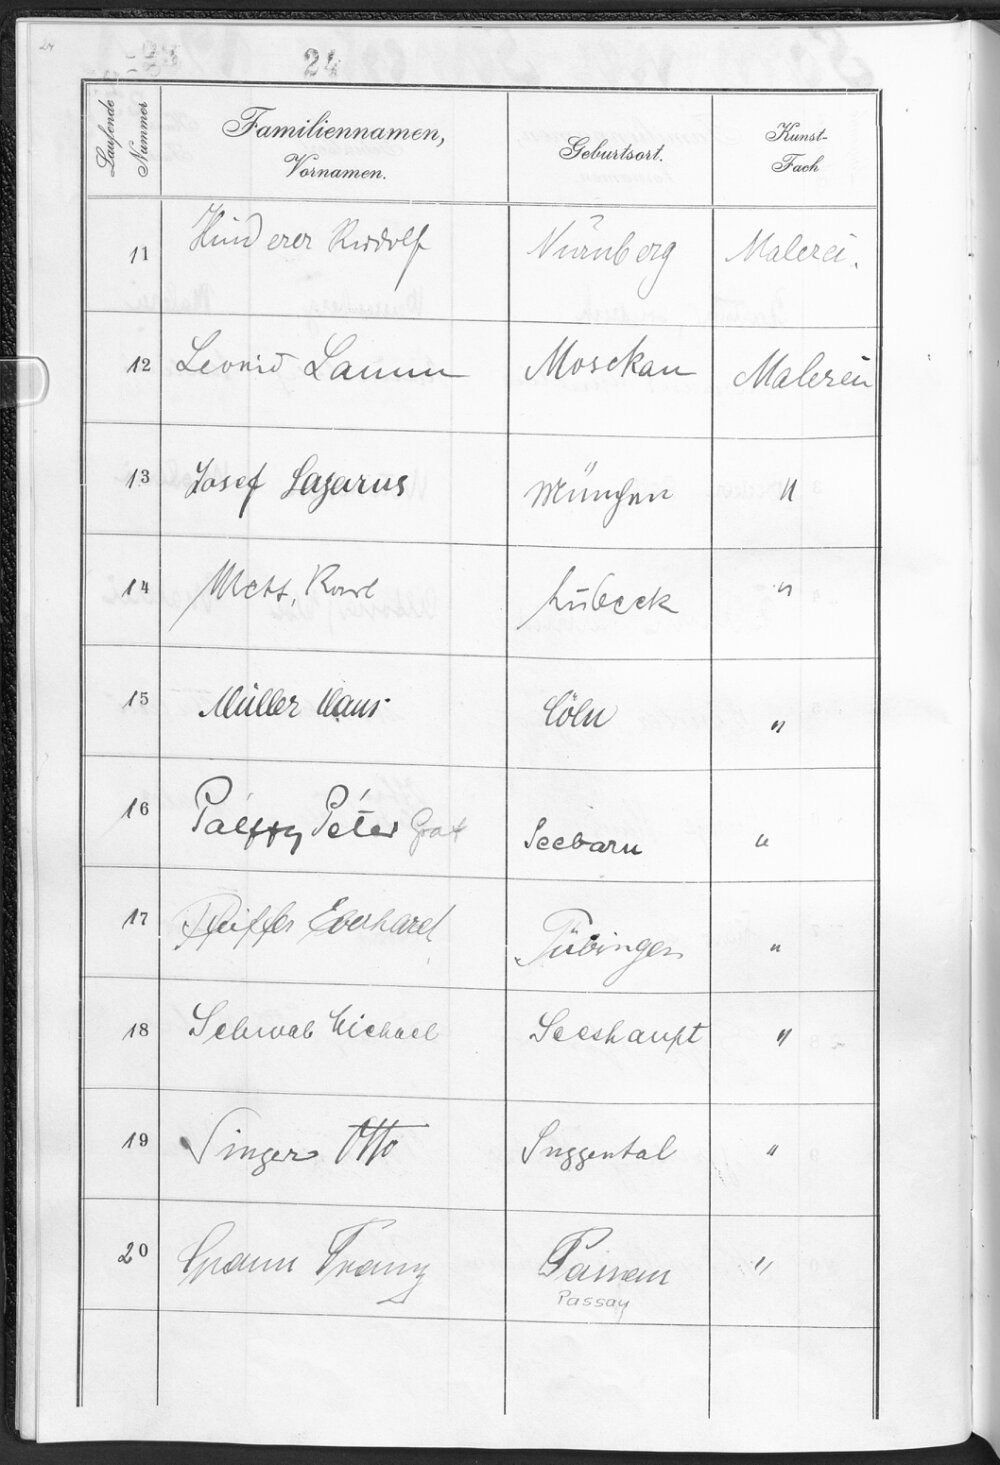 24
24
Laufende Nummer
Familiennamen, Vornamen.
Geburtsort.
Kunst-Fach
11 Hinderer Rudolf Nürnberg Malerei.
12 Leonid Lamm Mosckau Malerei
13 Josef Lazarus München "
14 Mett, Karl Lübeck "
15 Müller Hans Cöln "
16 Pálffy Péter Graf Seebarn "
17 Pfeiffer Eberhard Tübingen "
18 Schwab Michael Seeshaupt "
19 Singer Otto Suggental "
20 Spann Franz Passau "
Passau